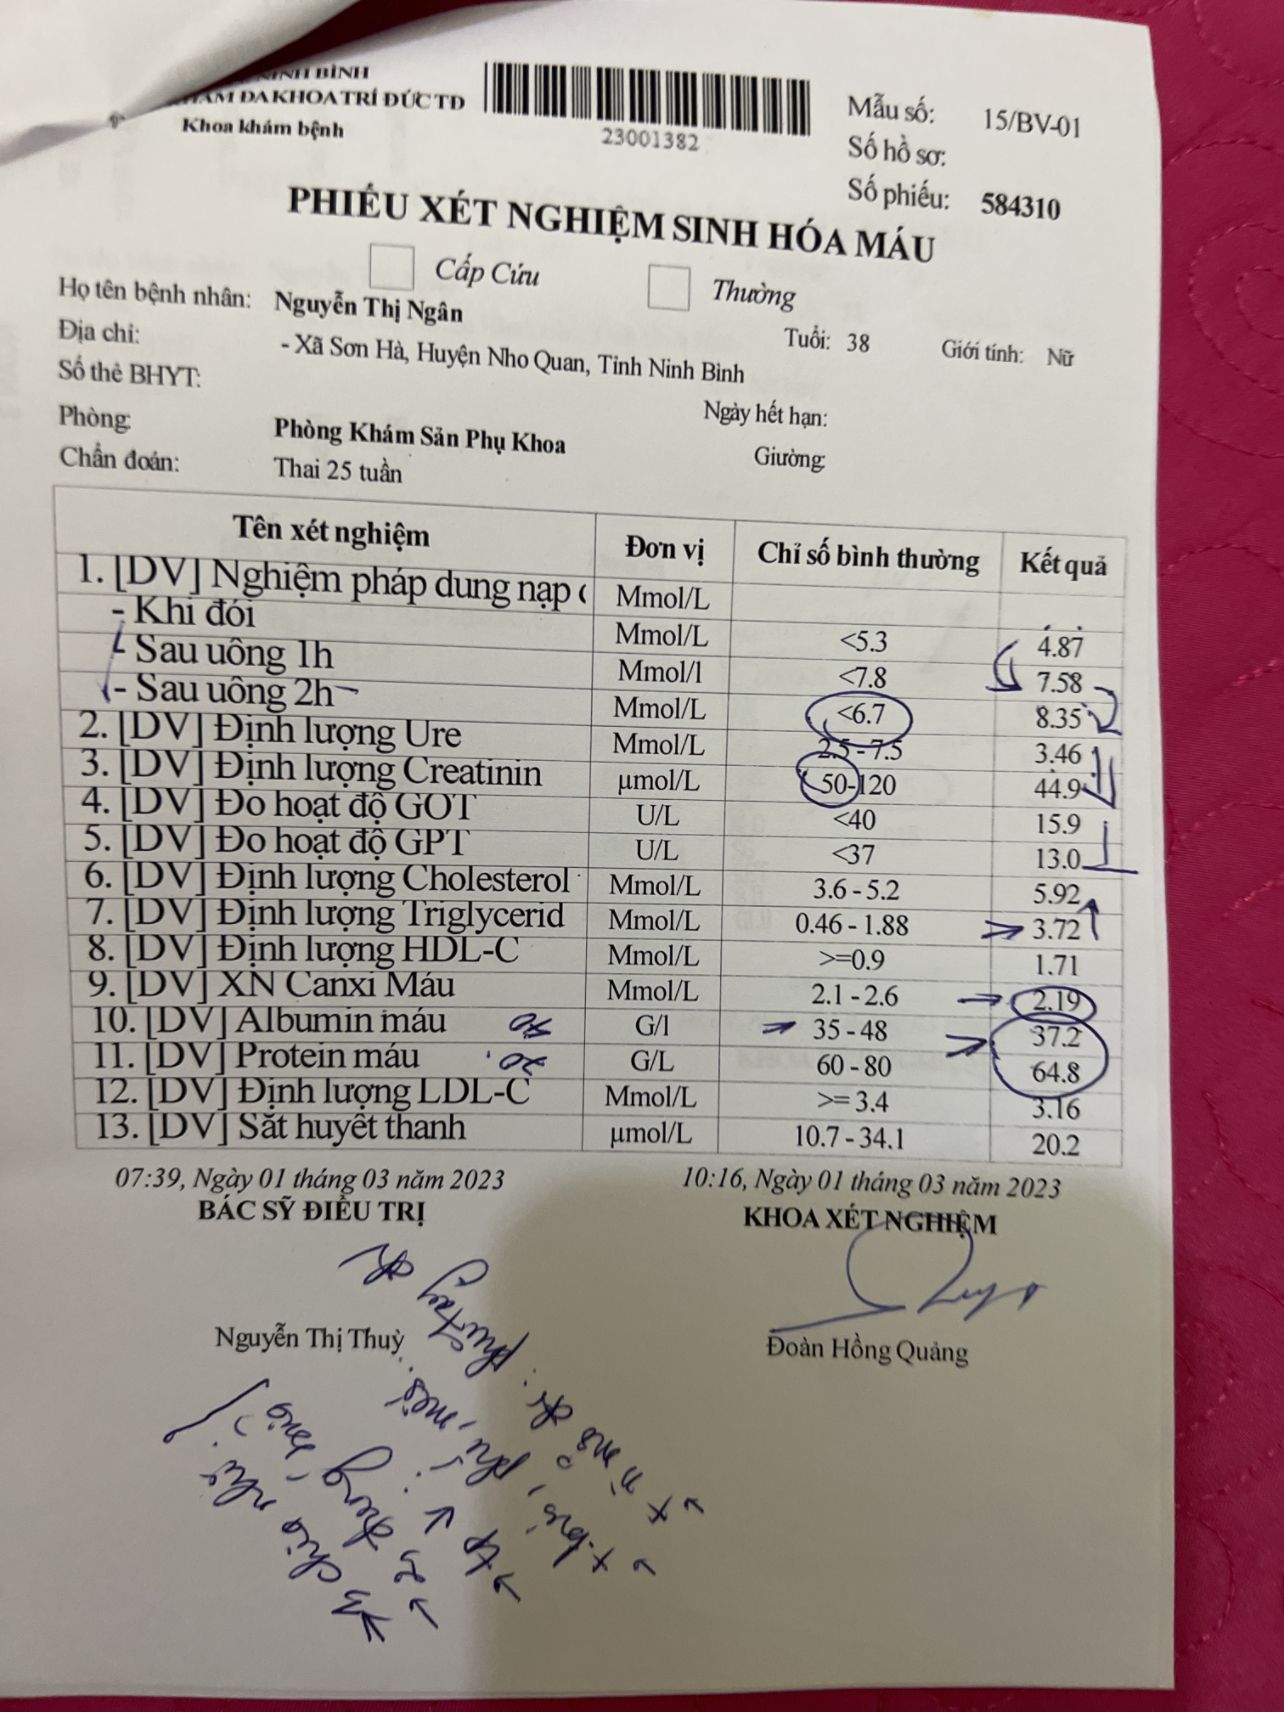 NINH BÌNH
KHÁM ĐA KHOA TRÍ ĐỨC TĐ
Khoa khám bệnh
23001382
Mẫu số: 15/BV-01
Số hồ sơ:
Số phiếu: 584310
PHIẾU XÉT NGHIỆM SINH HÓA MÁU
Cấp Cứu Thường
Họ tên bệnh nhân: Nguyễn Thị Ngân Tuổi: 38 Giới tính: Nữ
Địa chỉ: - Xã Sơn Hà, Huyện Nho Quan, Tỉnh Ninh Bình
Số thẻ BHYT: Ngày hết hạn:
Phòng: Phòng Khám Sản Phụ Khoa Giường:
Chẩn đoán: Thai 25 tuần
Tên xét nghiệm Đơn vị Chỉ số bình thường Kết quả
1. [DV] Nghiệm pháp dung nạp Mmol/L
- Khi đói Mmol/L <5.3 4.87
- Sau uống 1h Mmol/l <7.8 7.58
- Sau uống 2h Mmol/L <6.7 8.35
2. [DV] Định lượng Ure Mmol/L 2.5 - 7.5 3.46
3. [DV] Định lượng Creatinin µmol/L 50-120 44.9
4. [DV] Đo hoạt độ GOT U/L <40 15.9
5. [DV] Đo hoạt độ GPT U/L <37 13.0
6. [DV] Định lượng Cholesterol Mmol/L 3.6 - 5.2 5.92
7. [DV] Định lượng Triglycerid Mmol/L 0.46 - 1.88 3.72
8. [DV] Định lượng HDL-C Mmol/L >=0.9 1.71
9. [DV] XN Canxi Máu Mmol/L 2.1 - 2.6 2.19
10. [DV] Albumin máu G/l 35 - 48 37.2
11. [DV] Protein máu G/L 60 - 80 64.8
12. [DV] Định lượng LDL-C Mmol/L >= 3.4 3.16
13. [DV] Sắt huyết thanh µmol/L 10.7 - 34.1 20.2
07:39, Ngày 01 tháng 03 năm 2023 10:16, Ngày 01 tháng 03 năm 2023
BÁC SỸ ĐIỀU TRỊ KHOA XÉT NGHIỆM
Nguyễn Thị Thuỳ Đoàn Hồng Quảng